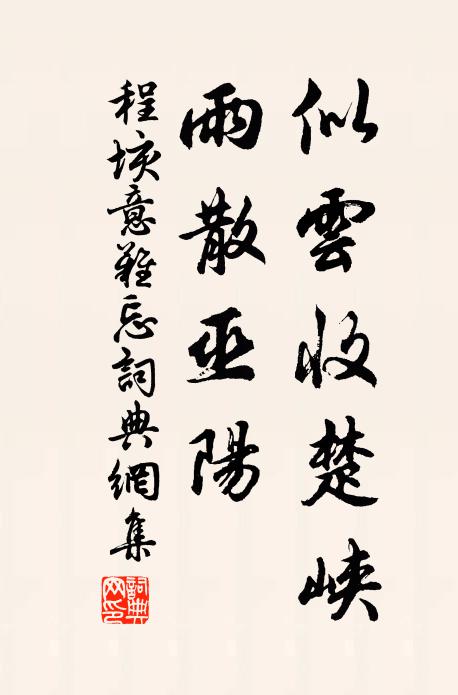 似雲收楚峽
雨散巫陽
程垓意難忘詞典網集
詞典網印